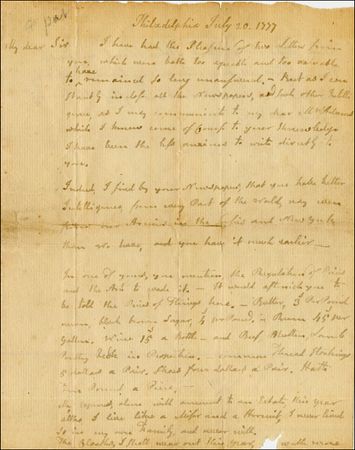 Philadelphia July 20. 1777
My dear Sir, I have had the Pleasure of two Letters from
you, which were both too agreable and too valuable
to have remained so long unanswered. - But as I con
stantly inclose all the Newspapers, and such other Intelli
gence, as I may communicate to my dear
which I knew came of Course to your Knowledge
I have been the less anxious to write directly to
you.
Indeed, I find by your Newspapers, that you have better
Intelligence from every Part of the World, nay even
from our Armies in the and New York
than we have, and you have it much earlier -
In one of yours, you mention the Regulation of Prices
and the Act to make it. - It would astonish you to
be told the Prices of Things here. - Butter, Pound
brown Sugar, Pound, Rum 45s per
Gallon. Wine 15s a Bottle - and Beef Mutton, Lamb
Pork in Proportion. common Thread Stockings
5 dollars a Pair. Shoes four dollars a Pair. Hatts
Ten Pound a Piece, -
My Expences alone will amount to an Estate this Year
altho I live like a Miser and a Hermit, I never lived
so in my own Family, and never will.
The Cloaths I shall wear out this Year, with more